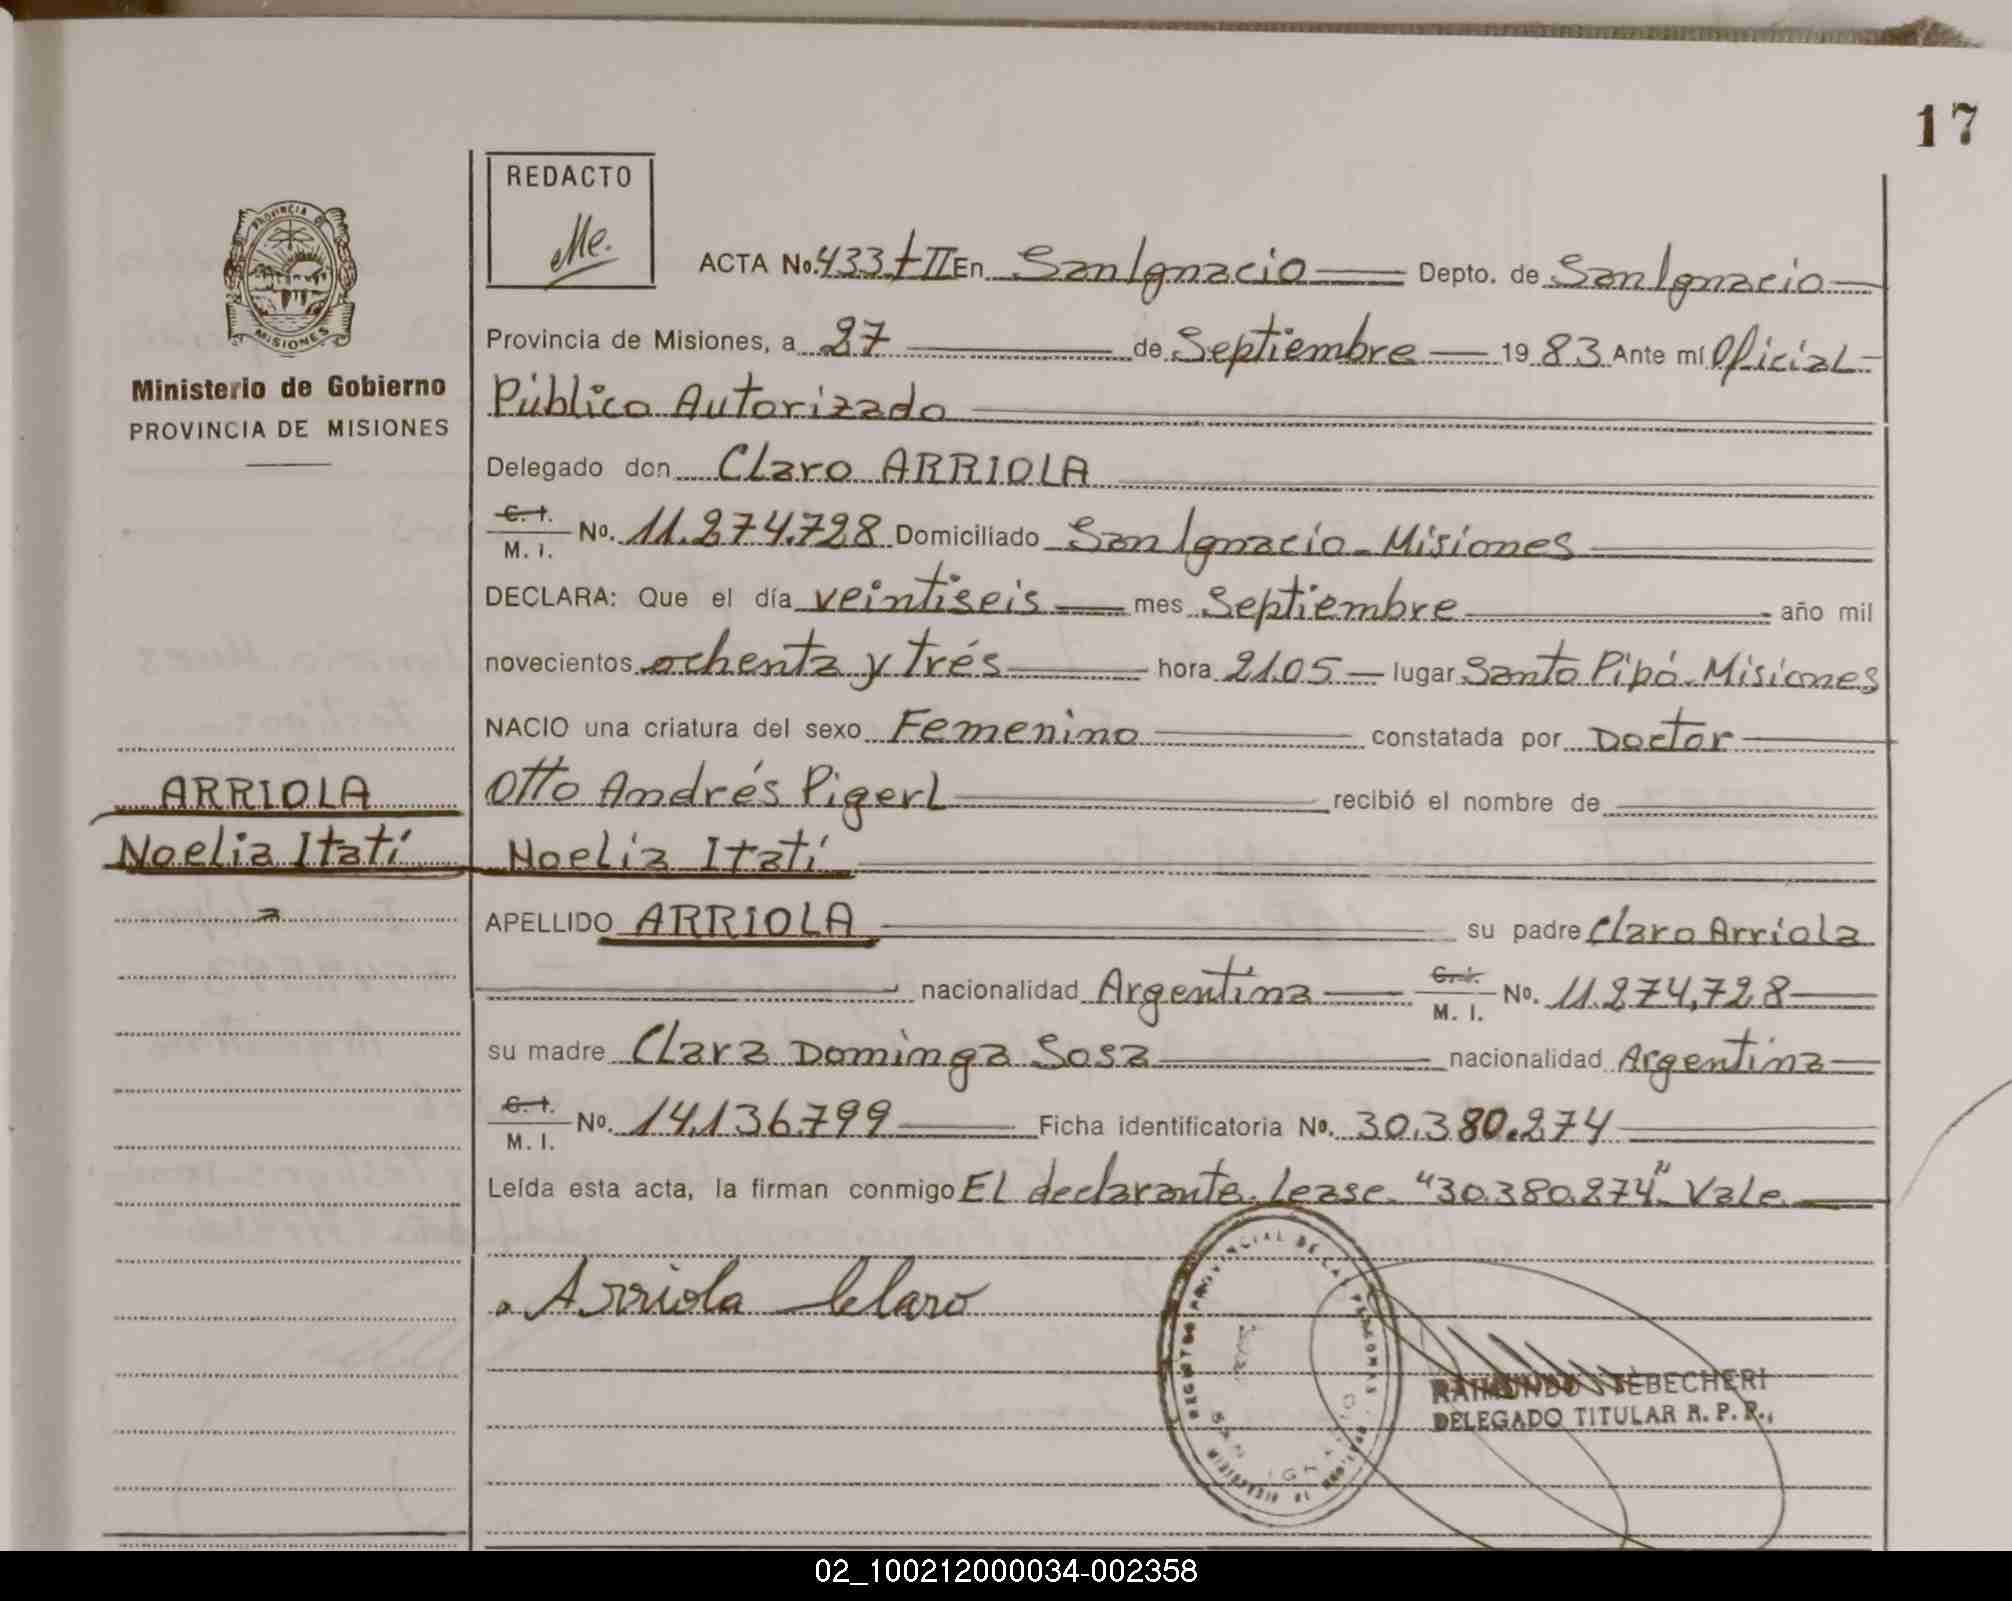 17
REDACTO
Me.
PROVINCIA DE
MISIONES
Ministerio de Gobierno
PROVINCIA DE MISIONES
ACTA No. 433 t II En San Ignacio Depto. de San Ignacio
Provincia de Misiones, a 27 de Septiembre 19 83 Ante mí Oficial
Público Autorizado
Delegado don Claro ARRIOLA
C. I. M. I. No. 11.274.728 Domiciliado San Ignacio - Misiones
DECLARA: Que el día veintiseis mes Septiembre año mil
novecientos ochenta y trés hora 21.05 lugar Santo Pipó - Misiones
NACIO una criatura del sexo Femenino constatada por Doctor
Otto Andrés Pigerl recibió el nombre de
ARRIOLA
Noelia Itatí
Noelia Itatí
APELLIDO ARRIOLA su padre Claro Arriola
nacionalidad Argentina C. I. M. I. No. 11.274,728
su madre Clara Dominga Sosa nacionalidad Argentina
C. I. M. I. No. 14.136.799 Ficha identificatoria No. 30.380.274
Leída esta acta, la firman conmigo El declarante. Lease. "30.380.274". Vale
Arriola Claro
REGISTRO PROVINCIAL DE LAS PERSONAS
SAN IGNACIO
RAIMUNDO TEBECHERI
DELEGADO TITULAR R. P. P.,
02_100212000034-002358